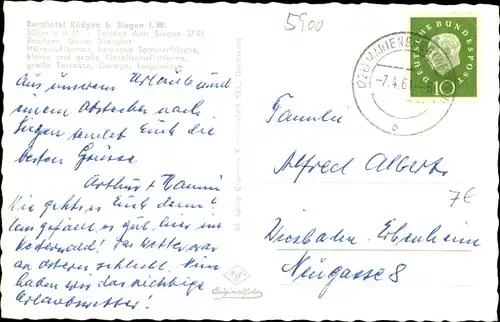 Berghotel Rödgen b. Siegen i.W.
500 m ü. d. M. - Telefon Amt Siegen
Besitzer: Oscar
herrliche Sommerfrische,
kleine und große Gesellschaftsräume,
große Terrasse, Garage, Liegewiese
5900
Aus unserem Urlaub und
einem Abstecher nach
Siegen sendet Euch die
besten Grüsse
Arthur + Hanni
Wie geht es Euch denn?
Uns gefällt es gut hier im
Westerwald! Das Wetter war
an Ostern schlecht. Nun
haben wir das richtige
Urlaubswetter!
60 Jahre Cramers Kunstanstalt KG., Dortmund
Originalfoto
-7.4.61
DEUTSCHE BUNDESPOST
10
Familie
Alfred Albert
7€
Wiesbaden-Erbenheim
Neugasse 8